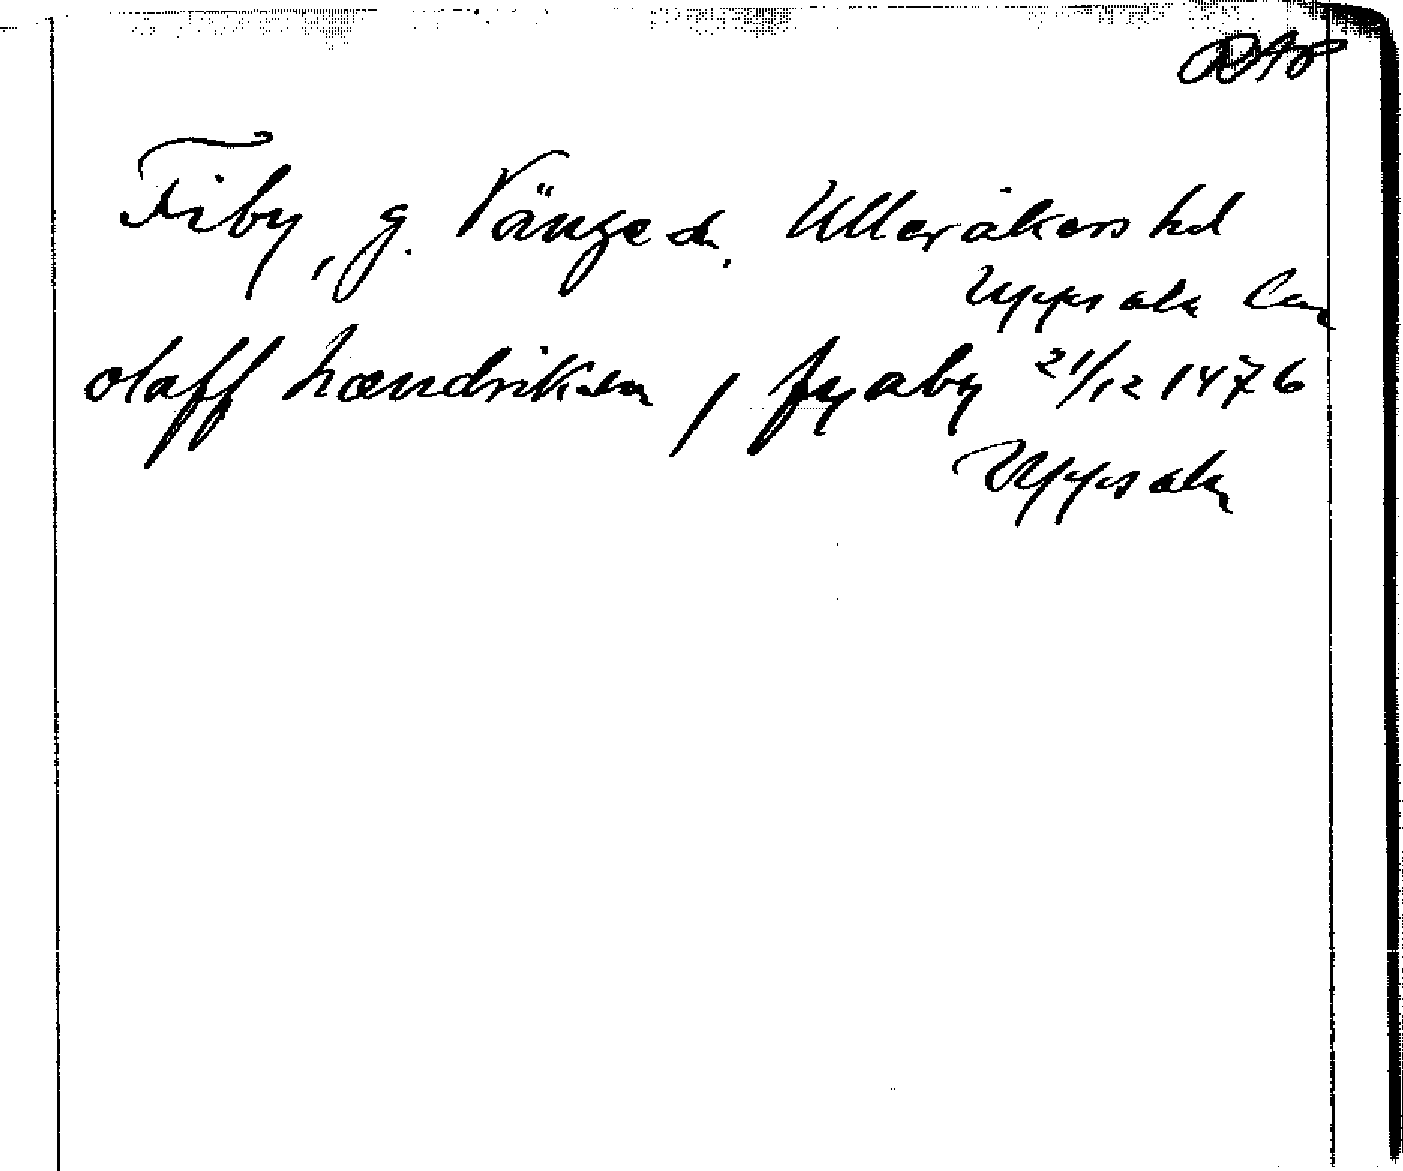 RAP
Fiby, g. Vänge sn. Ulleråkers hd
Uppsala län
olaff hændrikson / fyaby 21/12 1476
Uppsala